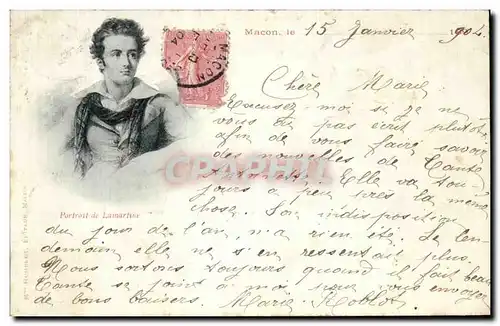 Macon, le 15 Janvier 1904.
Chère Marie
Excusez-moi si je ne
vous ai pas écrit plutôt
afin de vous faire savoir
des nouvelles de Tante
Elle va tou-
jours à peu près la même
chose. Son indisposition
Portrait de Lamartine
du jour de l'an, n'a rien été. Le len-
demain elle ne s'en ressentait plus.
Nous sortons toujours quand il fait beau
Tante se joint à moi pour vous envoyer
de bons baisers. Marie Noblot.
MACON
04